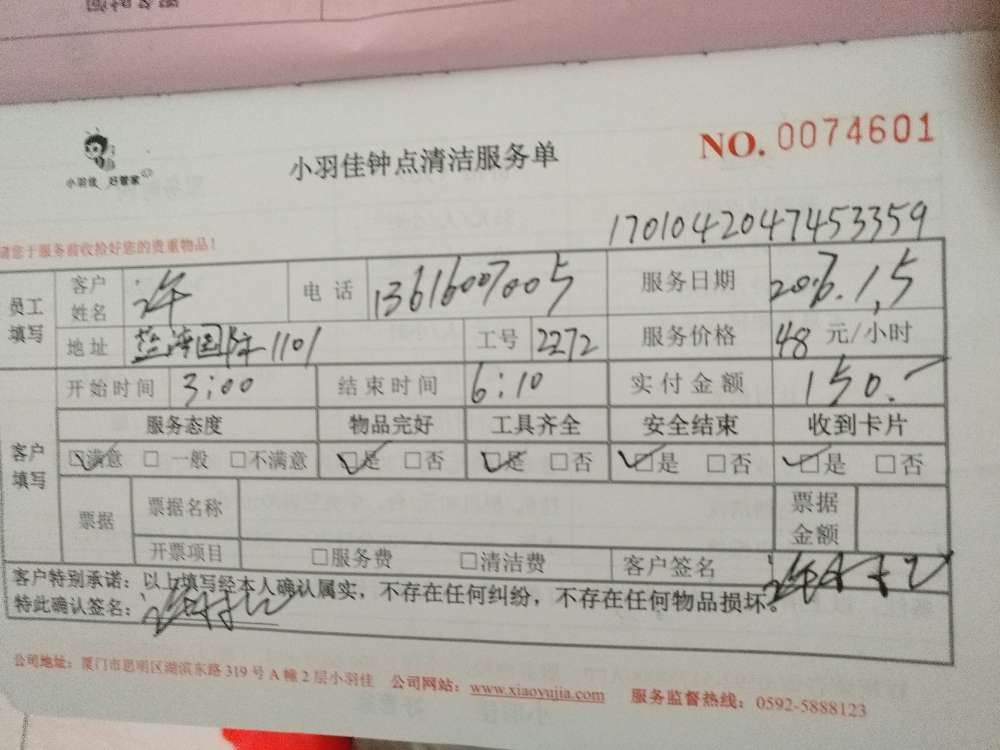 小羽佳 好管家
小羽佳钟点清洁服务单
NO. 0074601
1701042047453359
请您于服务前收拾好您的贵重物品!
员工填写 客户姓名 许 电话 13616007005 服务日期
地址 1101 工号 2272 服务价格 48 元/小时
客户填写 开始时间 3:00 结束时间 6:10 实付金额 150.-
服务态度 物品完好 工具齐全 安全结束 收到卡片
☑满意 □一般 □不满意 ☑是 □否 ☑是 □否 ☑是 □否 ☑是 □否
票据 票据名称 票据金额
开票项目 □服务费 □清洁费 客户签名
客户特别承诺:以上填写经本人确认属实,不存在任何纠纷,不存在任何物品损坏。
特此确认签名:
公司地址:厦门市思明区湖滨东路 319 号 A 幢 2 层小羽佳 公司网站:www.xiaoyujia.com 服务监督热线:0592-5888123